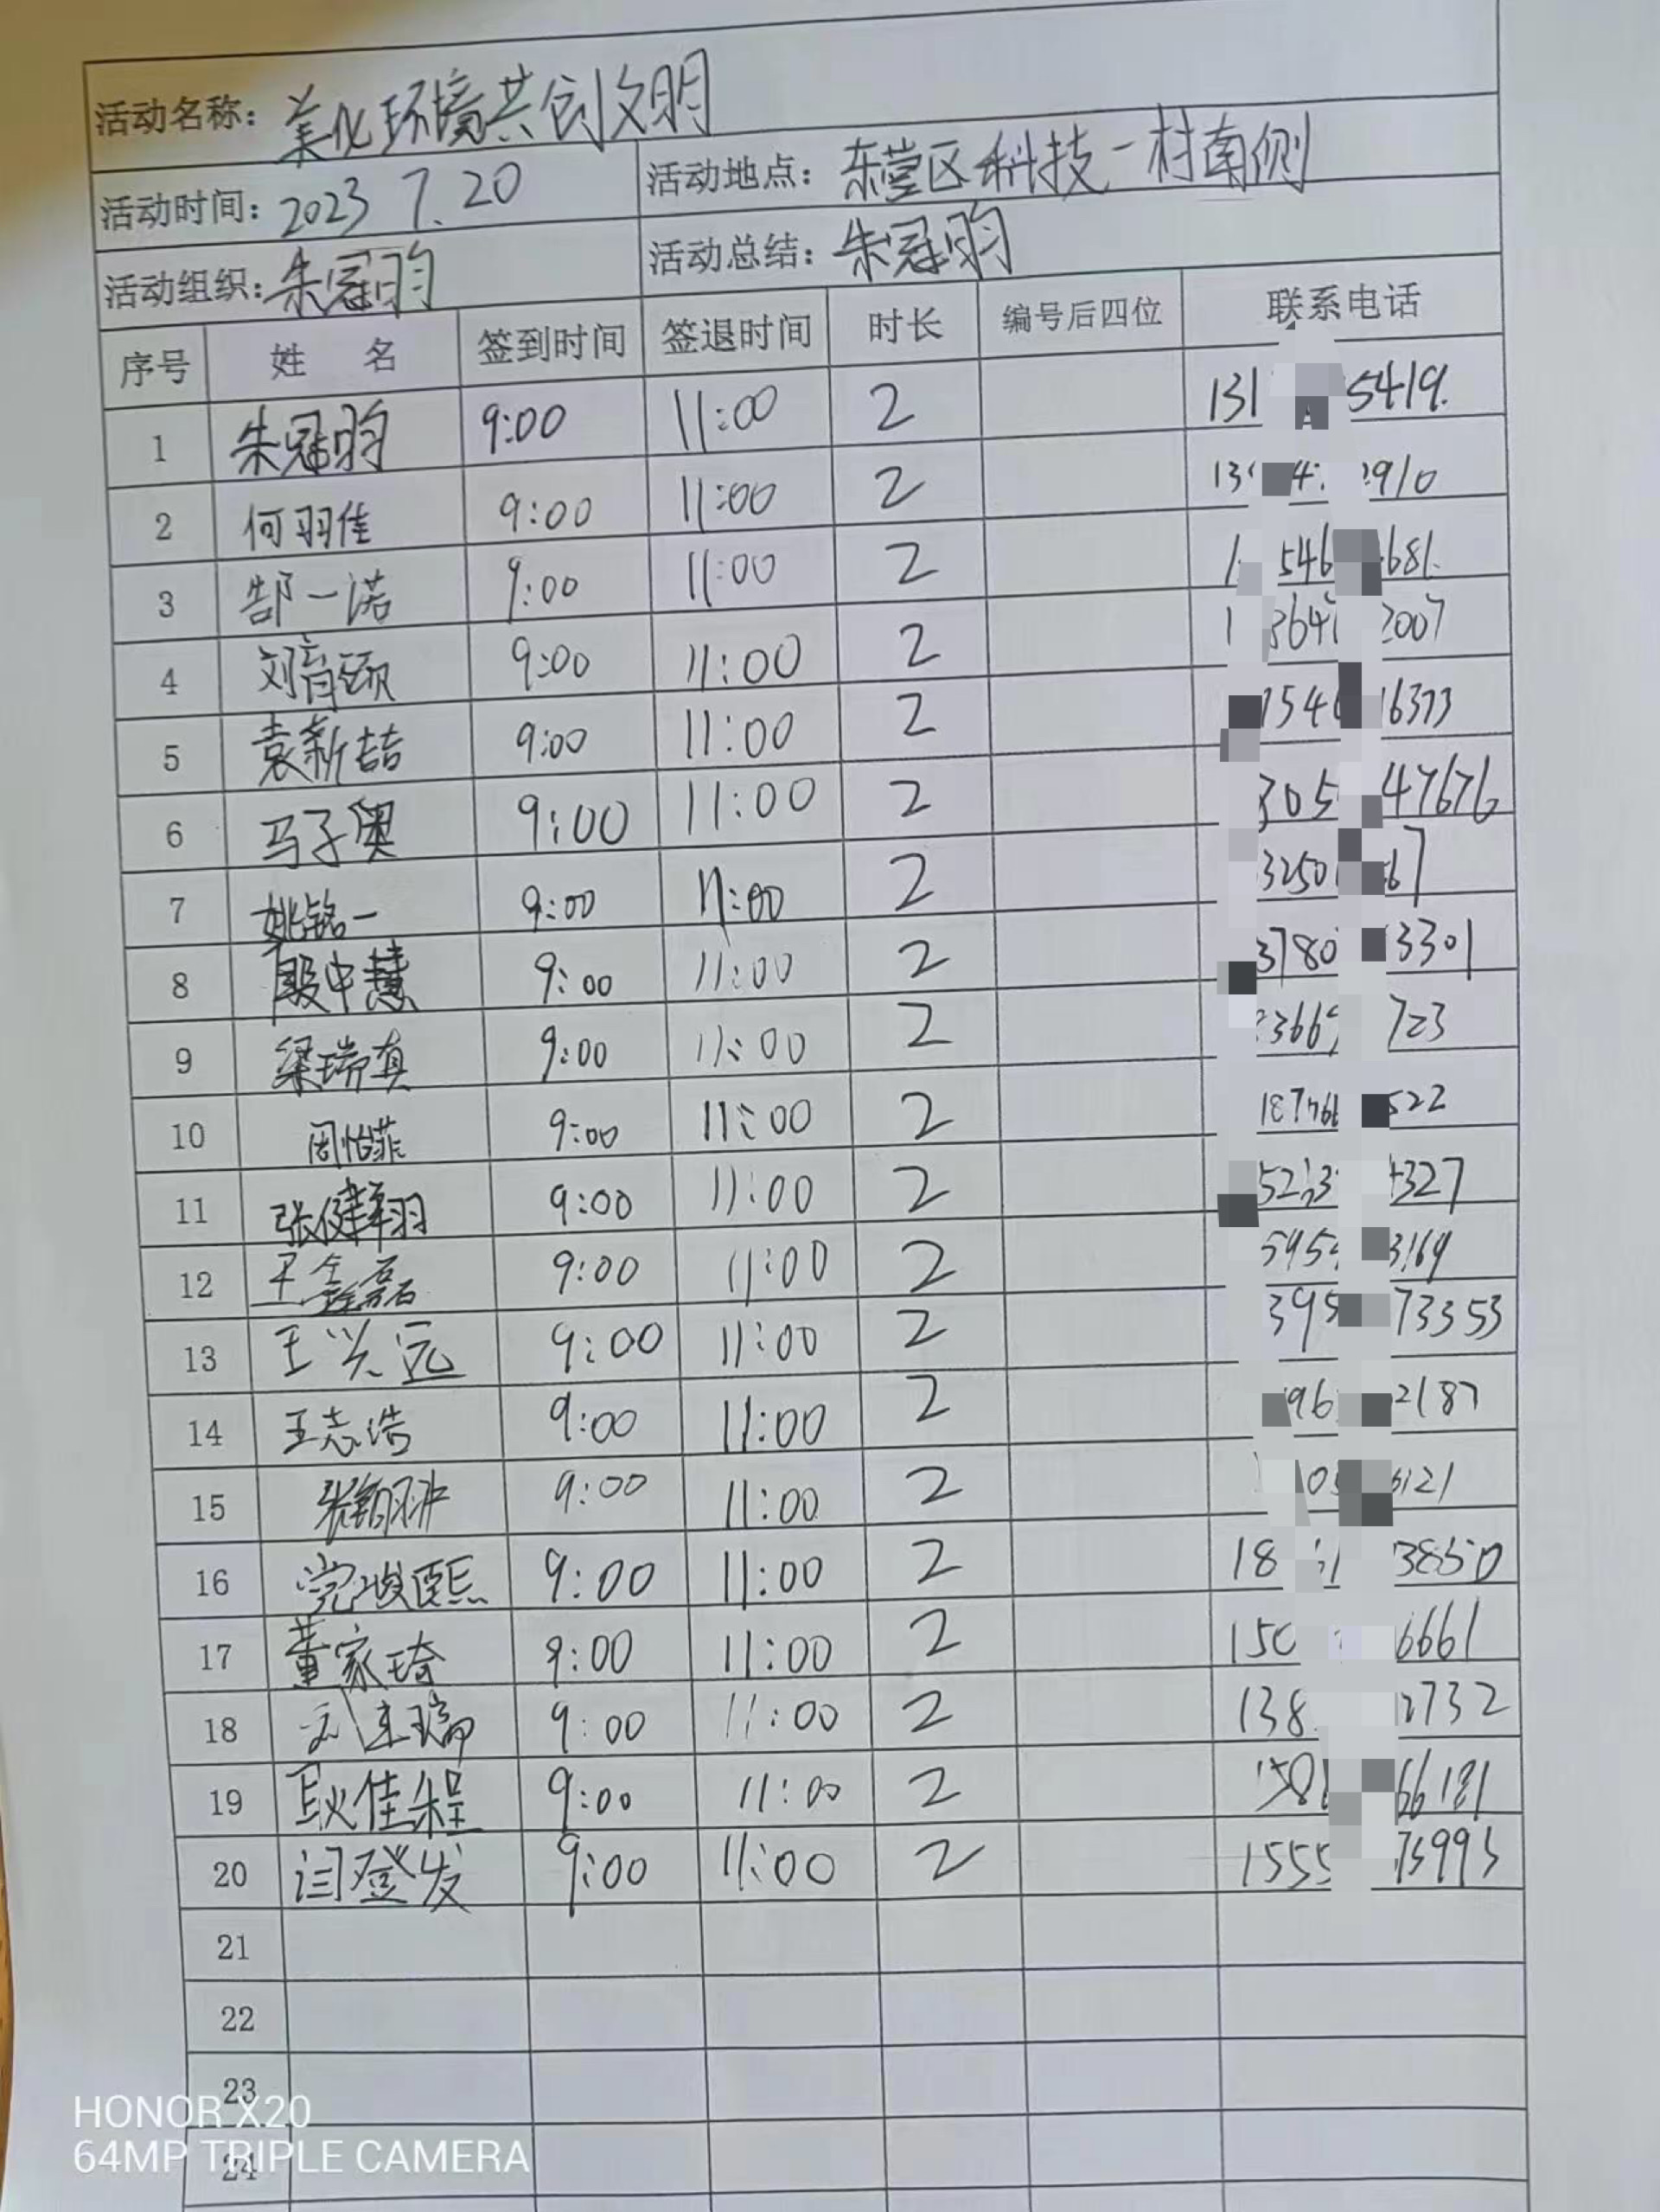 活动名称：美化环境共创文明
活动时间：2023 7.20 活动地点：东营区科技一村南侧
活动组织：朱冠昀 活动总结：朱冠昀
序号 姓 名 签到时间 签退时间 时长 编号后四位 联系电话
1 朱冠昀 9:00 11:00 2 131 5419.
2 何羽佳 9:00 11:00 2 2910
3 郜一诺 9:00 11:00 2 1 546 681.
4 刘育颐 9:00 11:00 2 1 364 2007
5 袁新喆 9:00 11:00 2 154 16373
6 马子奥 9:00 11:00 2 305 47676
7 姚铭一 9:00 11:00 2 3250 67
8 殷中慧 9:00 11:00 2 3780 3301
9 梁瑞真 9:00 11:00 2 366 723
10 周怡菲 9:00 11:00 2 18766 522
11 张健翔 9:00 11:00 2 52 3 327
12 王鑫磊 9:00 11:00 2 595 3169
13 王兴远 9:00 11:00 2 395 73353
14 王志浩 9:00 11:00 2 96 2187
15 张 9:00 11:00 2 05 6121
16 9:00 11:00 2 18 3850
17 董家琦 9:00 11:00 2 150 6661
18 9:00 11:00 2 138 2732
19 耿佳程 9:00 11:00 2 158 66181
20 闫登发 9:00 11:00 2 1555 73993
21
22
23
24
HONOR X20
64MP TRIPLE CAMERA